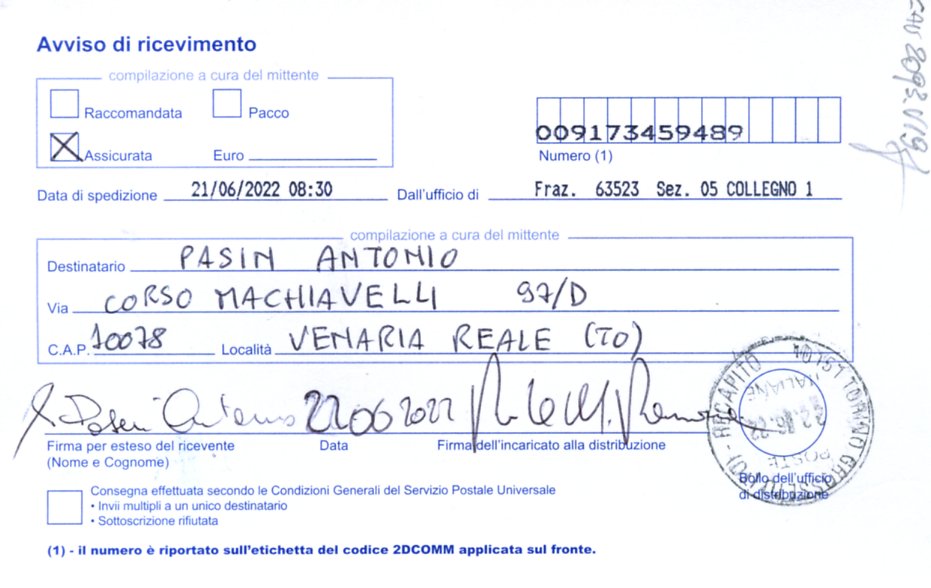 Avviso di ricevimento
compilazione a cura del mittente
Raccomandata Pacco
Assicurata Euro
009173459489
Numero (1)
Data di spedizione 21/06/2022 08:30 Dall'ufficio di Fraz. 63523 Sez. 05 COLLEGNO 1
compilazione a cura del mittente
Destinatario PASIN ANTONIO
Via CORSO MACHIAVELLI 97/D
C.A.P. 10078 Località VENARIA REALE (TO)
22062022
Firma per esteso del ricevente Data Firma dell'incaricato alla distribuzione
(Nome e Cognome)
RECAPITO 10151 TORINO
POSTE ITALIANE
Bollo dell'ufficio
di distribuzione
Consegna effettuata secondo le Condizioni Generali del Servizio Postale Universale
• Invii multipli a un unico destinatario
• Sottoscrizione rifiutata
(1) - il numero è riportato sull'etichetta del codice 2DCOMM applicata sul fronte.